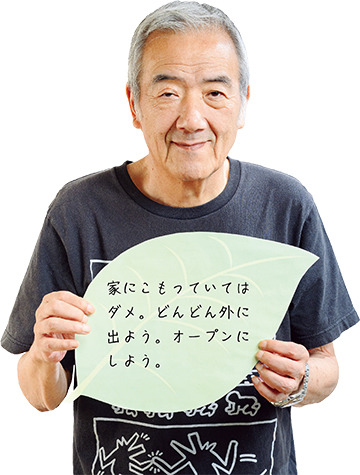 家にこもっていては
ダメ。どんどん外に
出よう。オープンに
しよう。